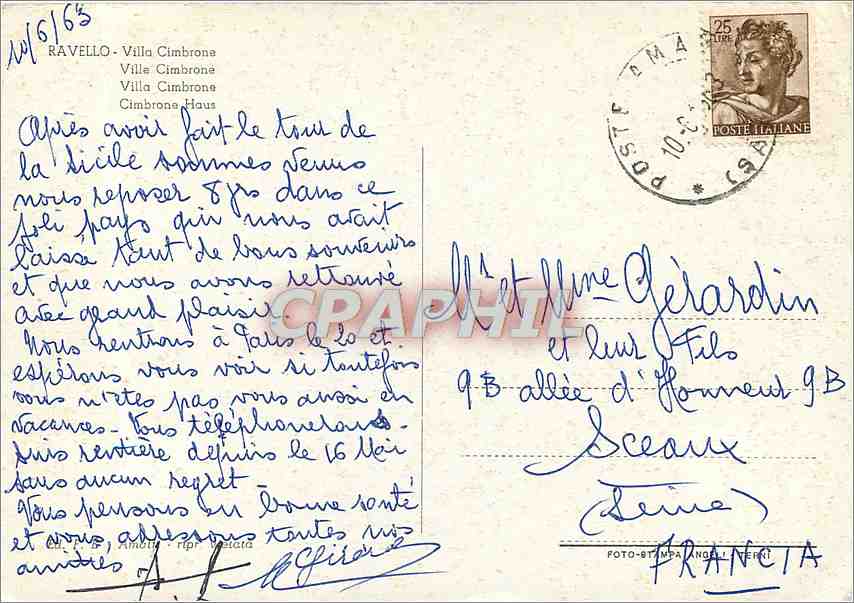 10/6/63
RAVELLO - Villa Cimbrone
Ville Cimbrone
Villa Cimbrone
Cimbrone Haus
Après avoir fait le tour de
la Sicile sommes venus
nous reposer 8 jrs dans ce
joli pays qui nous avait
laissé tant de bons souvenirs
et que nous avons retrouvé
avec grand plaisir.
Nous rentrons à Paris le 20 et
espérons vous voir si toutefois
vous n'êtes pas vous aussi en
vacances - Vous téléphonerons -
Suis rentière depuis le 16 Mai
sans aucun regret -
Vous pensons en bonne santé
et vous adressons toutes nos
amitiés
Ed. P. - ripr. vietata
25
LIRE
POSTE ITALIANE
POSTE AMA
10-6
(SA)
CPARHIL
Mr et Mme Gérardin
et leur Fils
9B allée d'Honneur 9B
Sceaux
(Seine)
FOTO-STAMPA ANGELI - TERNI
FRANCIA